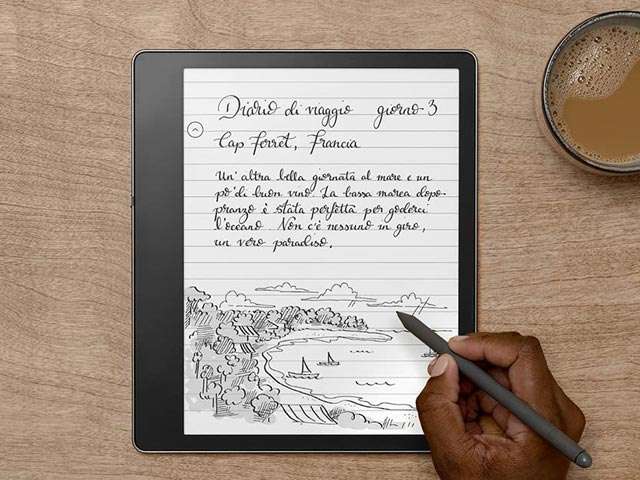 Diario di viaggio giorno 3
Cap Ferret, Francia
Un' altra bella giornata al mare e un
po' di buon vino. La bassa marea dopo
pranzo è stata perfetta per goderci
l'oceano. Non c'è nessuno in giro,
un vero paradiso.